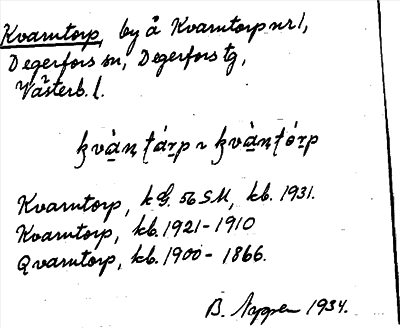 Kvarntorp, by å Kvarntorp nr 1,
Degerfors sn, Degerfors tg,
Västerb. l.
Kvarntorp, kG. 56 SM, kb. 1931.
Kvarntorp, kb. 1921-1910
Qvarntorp, kb. 1900-1866.
B. 1934.